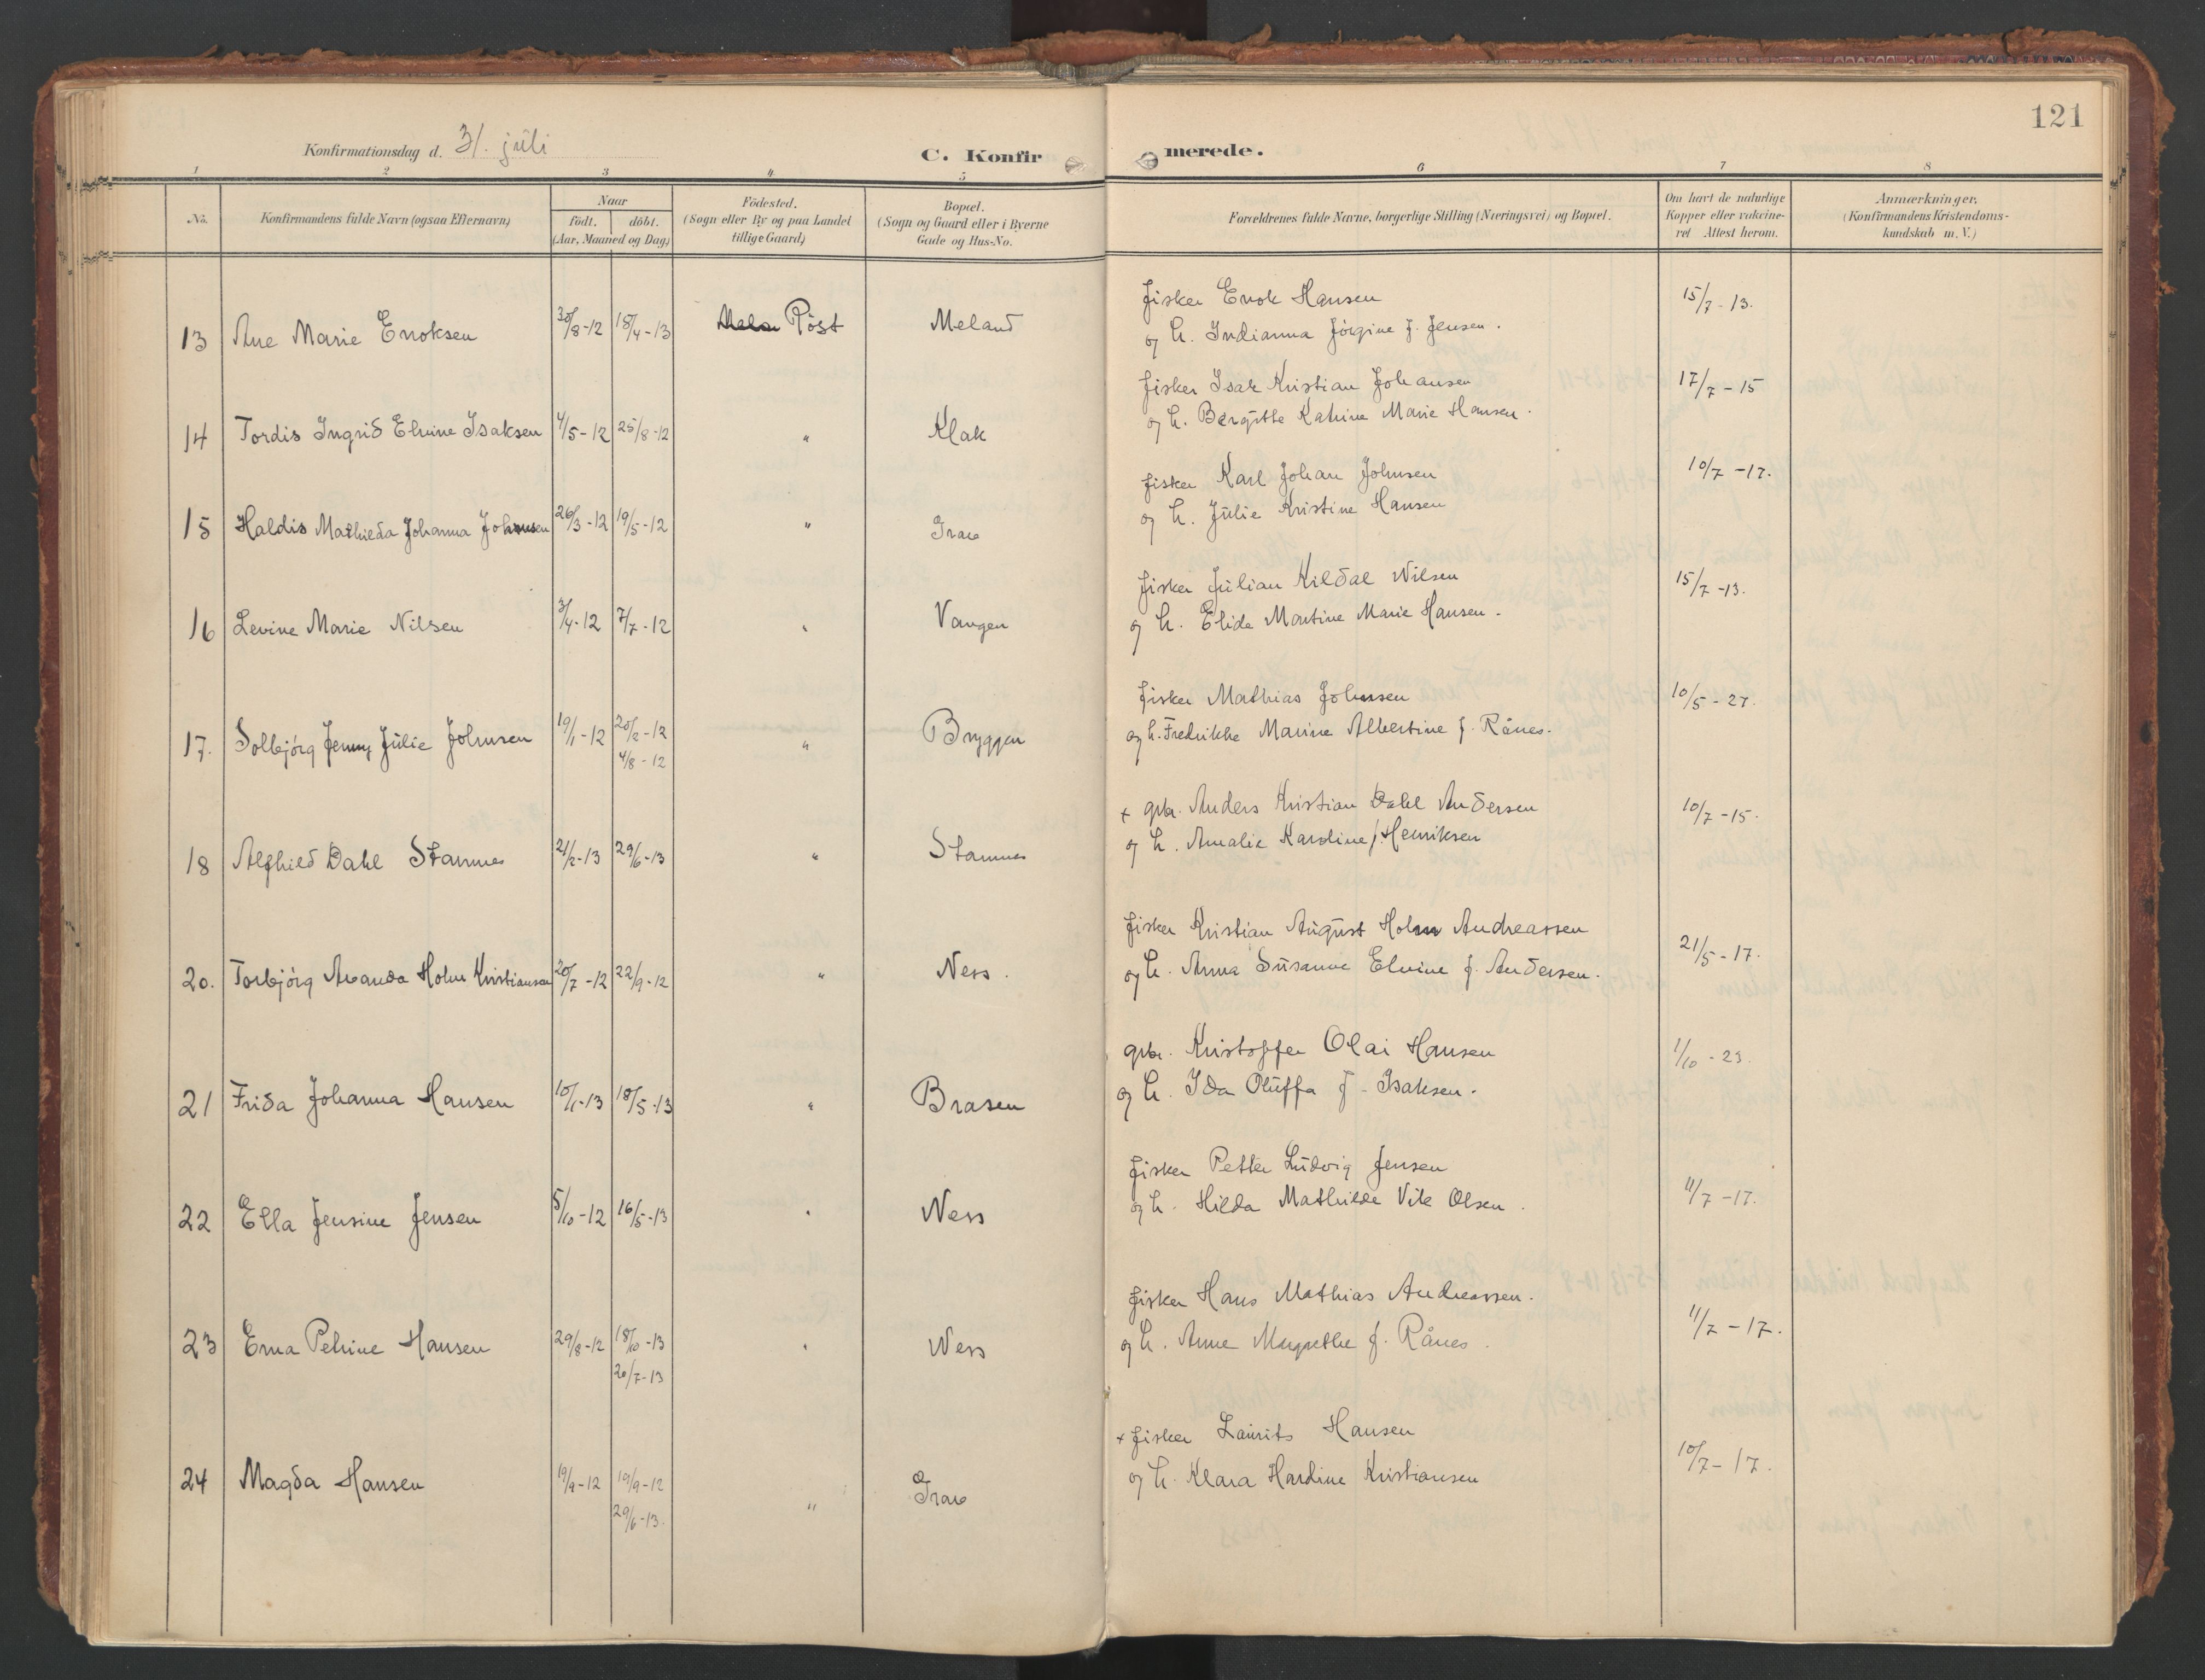 121
Konfirmationsdag d. 31. juli
C. Konfirmerede.
1 2 3 4 5 6 7 8
No.
Konfirmandens fulde Navn (ogsaa Efternavn)
Naar
födt. döbt.
(Aar, Maaned og Dag)
Födested.
(Sogn eller By og paa Landet
tillige Gaard)
Bopæl.
(Sogn og Gaard eller i Byerne
Gade og Hus-No.
Forældrenes fulde Navne, borgerlige Stilling (Næringsvei) og Bopæl.
Om havt de naturlige
Kopper eller vakcine-
ret Attest herom.
Anmærkninger.
(Konfirmandens Kristendoms-
kundskab m. V.)
13 Ane Marie Enoksen 30/8-12 18/4-13 Röst Meland
fisker Enok Hansen
og h. Indianna Jörgine f. Jensen.
15/7-13.
14 Tordis Ingrid Elvine Isaksen 4/5-12 25/8-12 " Klak
fisker Isak Kristian Johansen
og h. Bergitte Katrine Marie Hansen.
17/7-15
15 Haldis Mathieda Johanna Johnsen 26/3-12 19/5-12 "
fisker Karl Johan Johnsen
og h. Julie Kristine Hansen
10/7-17.
16 Levine Marie Nilsen 3/4-12 7/7-12 " Vangen
fisker Julian Kildal Nilsen
og h. Elida Martine Marie Hansen.
15/7-13.
17. Solbjörg Jenny Julie Johnsen 19/1-12 20/2-12 " Bryggen
4/8-12
fisker Mathias Johnsen
og h. Fredrikke Marine Albertine f. Rånes.
10/5-27.
18 Alfhild Dahl Stamnes 21/2-13 29/6-13 " Stamnes
+ gbr. Anders Kristian Dahl Andersen
og h. Amalie Karoline f. Henriksen
10/7-15.
20. Torbjörg Amanda Holm Kristiansen 20/7-12 22/9-12 " Ness.
fisker Kristian August Holm Andreassen
og h. Anna Susanne Elvine f. Andersen.
21/5-17.
21 Frida Johanna Hansen 10/1-13 18/5-13 " Brasen
gbr. Kristoffer Olai Hansen
og h. Ida Oluffa f. Isaksen.
1/10-23.
22 Ella Jensine Jensen 5/10-12 16/5-13 " Ness
fisker Petter Ludvig Jensen
og h. Hilda Mathilde Vik Olsen.
11/7-17.
23 Erna Petrine Hansen 29/8-12 18/10-13 " Ness
20/7-13
fisker Hans Mathias Andreassen.
og h. Anne Magrethe f. Rånes.
11/7-17.
24 Magda Hansen 19/9-12 19/9-12 "
29/6-13.
+ fisker Laurits Hansen
og h. Klara Hardine Kristiansen
10/7-17.